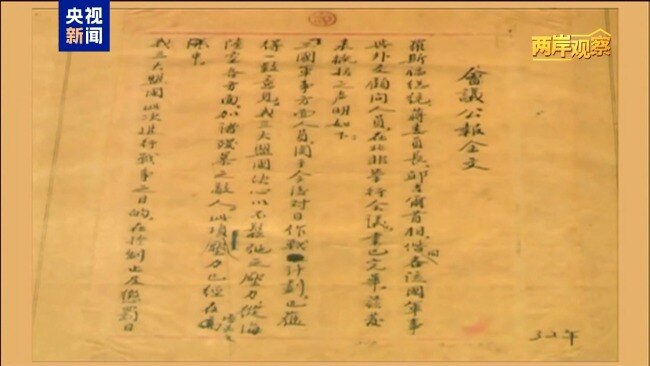 央视新闻
两岸观察
會議公報全文
羅斯福總統、蔣委員長、邱吉爾首相、偕同各該國軍事
與外交顧問人員、在北非舉行會議、業已完畢、茲發
表概括之聲明如下:
三國軍事方面人員、關于今後對日作戰計劃、已獲
得一致意見、我三大盟國決心以不鬆弛之壓力從海
陸空各方面、加諸殘暴之敵人、此項壓力已經在
中
我三大盟國此次進行戰爭之目的、在於制止及懲罰日
32年